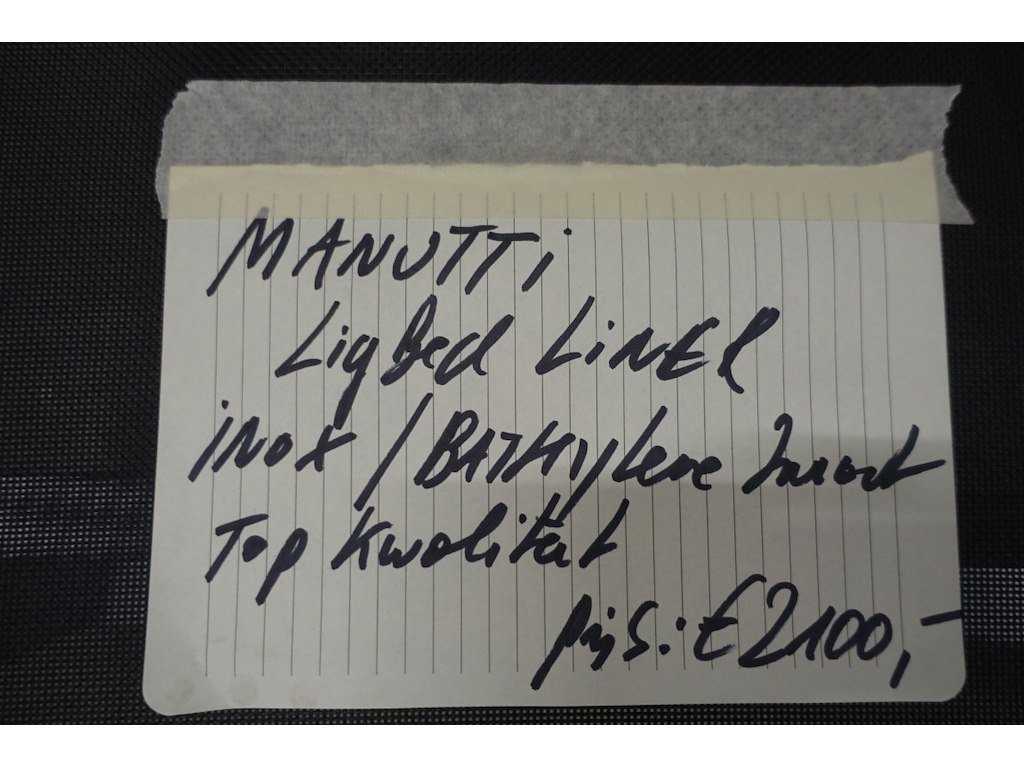 MANUTTi
LigBed LiNER
iNOX / BATHylene zwart
Top Kwaliteit
prijs: €2100,-